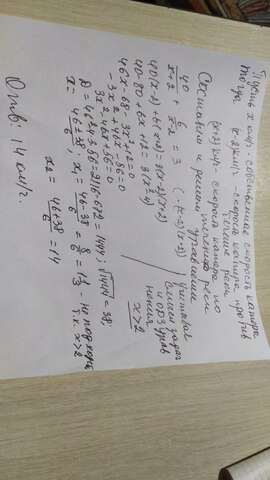 Пусть x км/ч собственная скорость катера
Тогда (x-2)км/ч - скорость катера против
течения реки
(x+2)км/ч - скорость катера по
течению реки
Составим и решим уравнение
40/x+2 + 6/x-2 = 3 (·(x-2)(x+2))
40(x-2)+6(x+2)=3(x-2)(x+2)
40x-80+6x+12=3(x²-4)
46x-68-3x²+12=0
-3x²+46x-56=0
3x²-46x+56=0
D=46²-4·3·56=2116-672=1444; √1444=38.
x=46±38/6; x₁=46-38/6=8/6=1⅓ - не подходит
т.к. x>2
x₂=46+38/6=14
учитывая
смысл задачи
и ОДЗ урав
нения
x>2
Ответ: 14 км/ч.